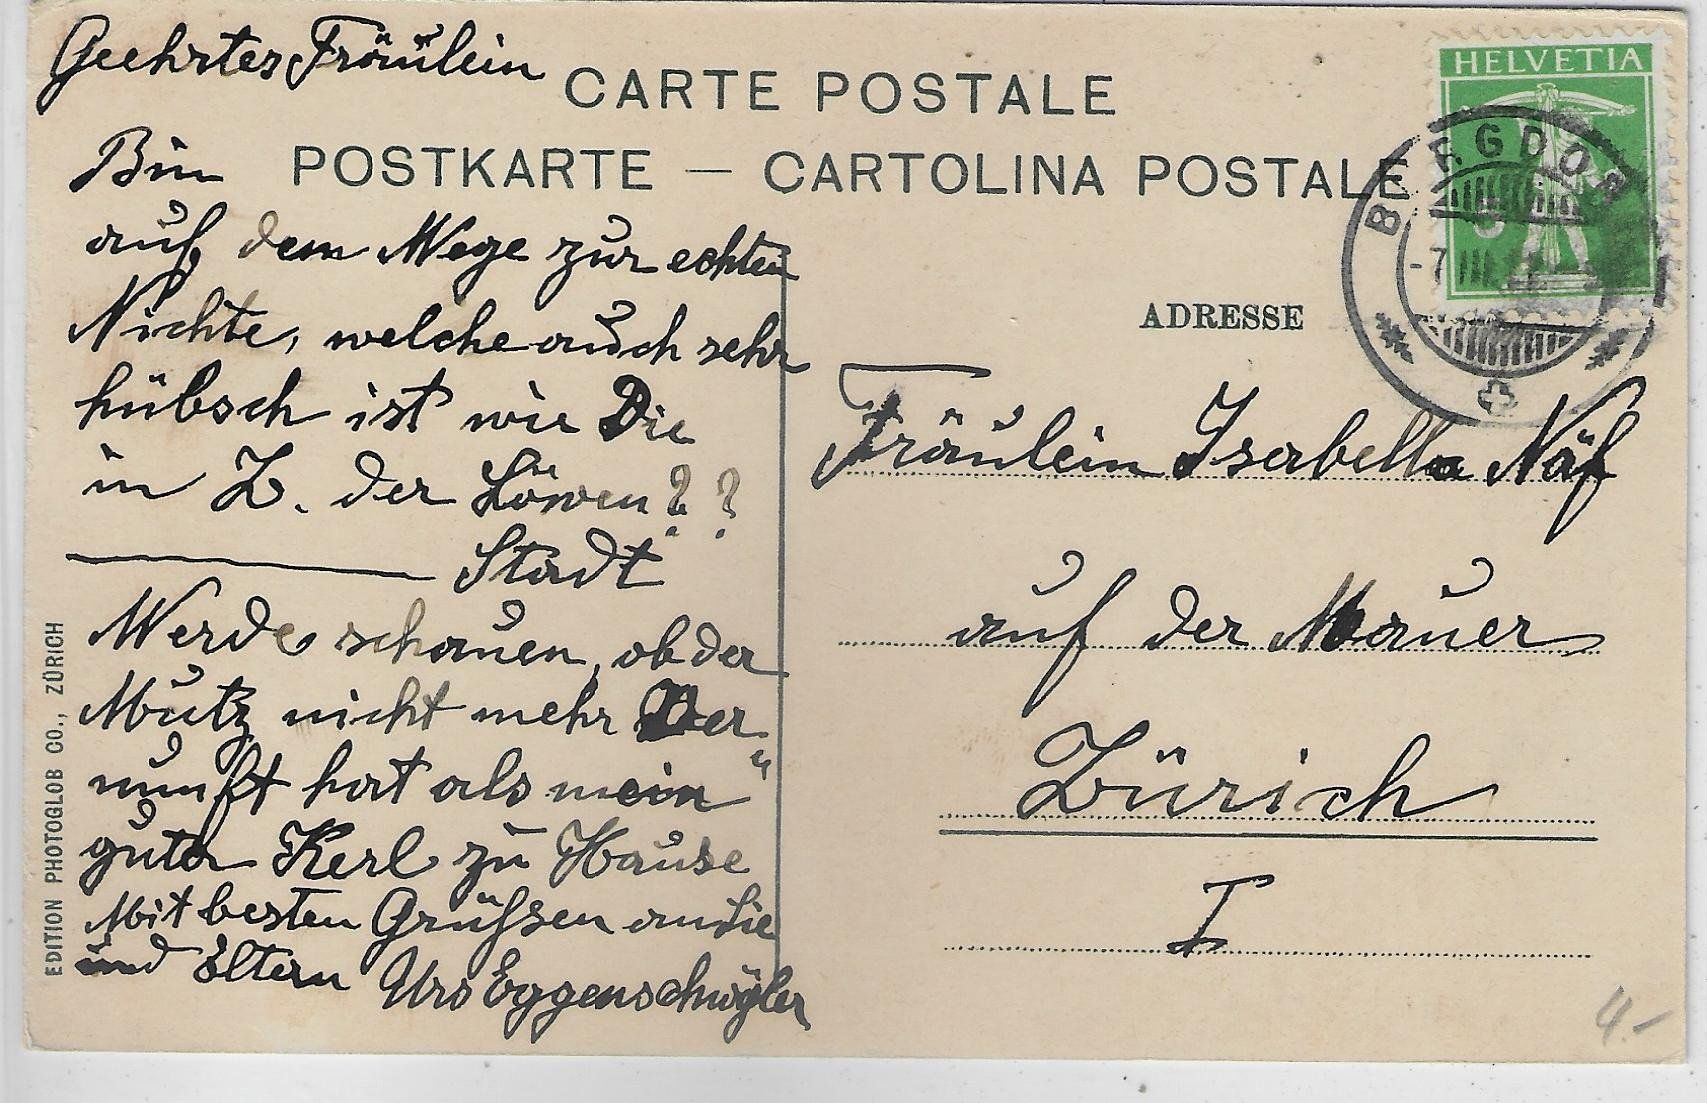 Geehrtes Fräulein
CARTE POSTALE
POSTKARTE — CARTOLINA POSTALE
Bin
auf dem Wege zur echten
Nichte, welche auch sehr
hübsch ist wie Die
in Z. der Löwen??
Stadt
Werde schauen, ob der
Mutz nicht mehr Ver
nunft hat als mein"
guter Kerl zu Hause
Mit besten Grüßen an Sie
und Eltern Urs Eggenschwyler
EDITION PHOTOGLOB CO., ZÜRICH
HELVETIA
5
BURGDORF
-7
ADRESSE
Fräulein Isabella Näf
auf der Mauer
Zürich
I
4.-